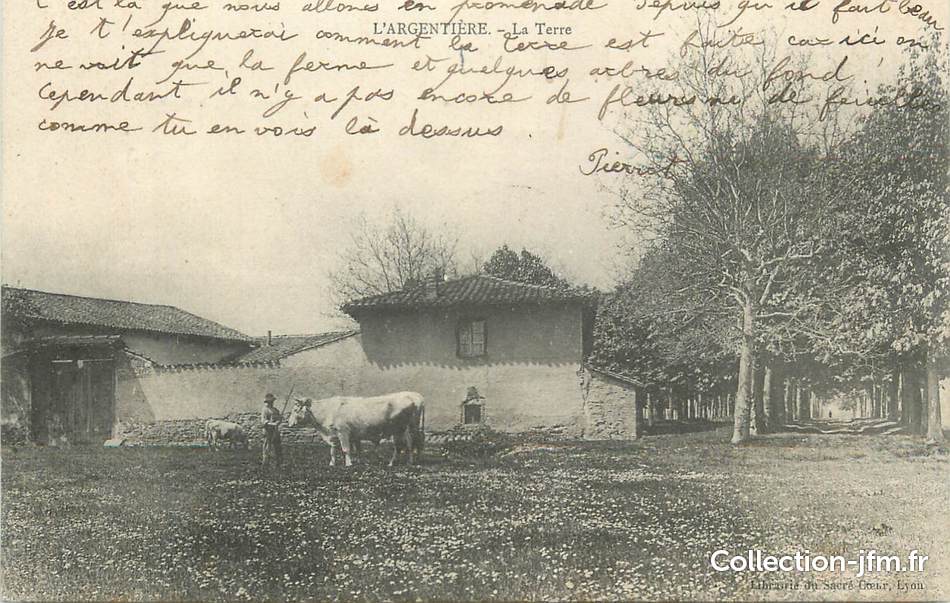 c'est là que nous allons en promenade depuis qu'il fait beau
L'ARGENTIÈRE. - La Terre
Je t'expliquerai comment la terre est faite car ici on
ne voit que la ferme et quelques arbres du fond !
Cependant il n'y a pas encore de fleurs ni de feuilles
comme tu en vois là dessus.
Pierrot
Collection-jfm.fr
Librairie du Sacré Cœur, Lyon